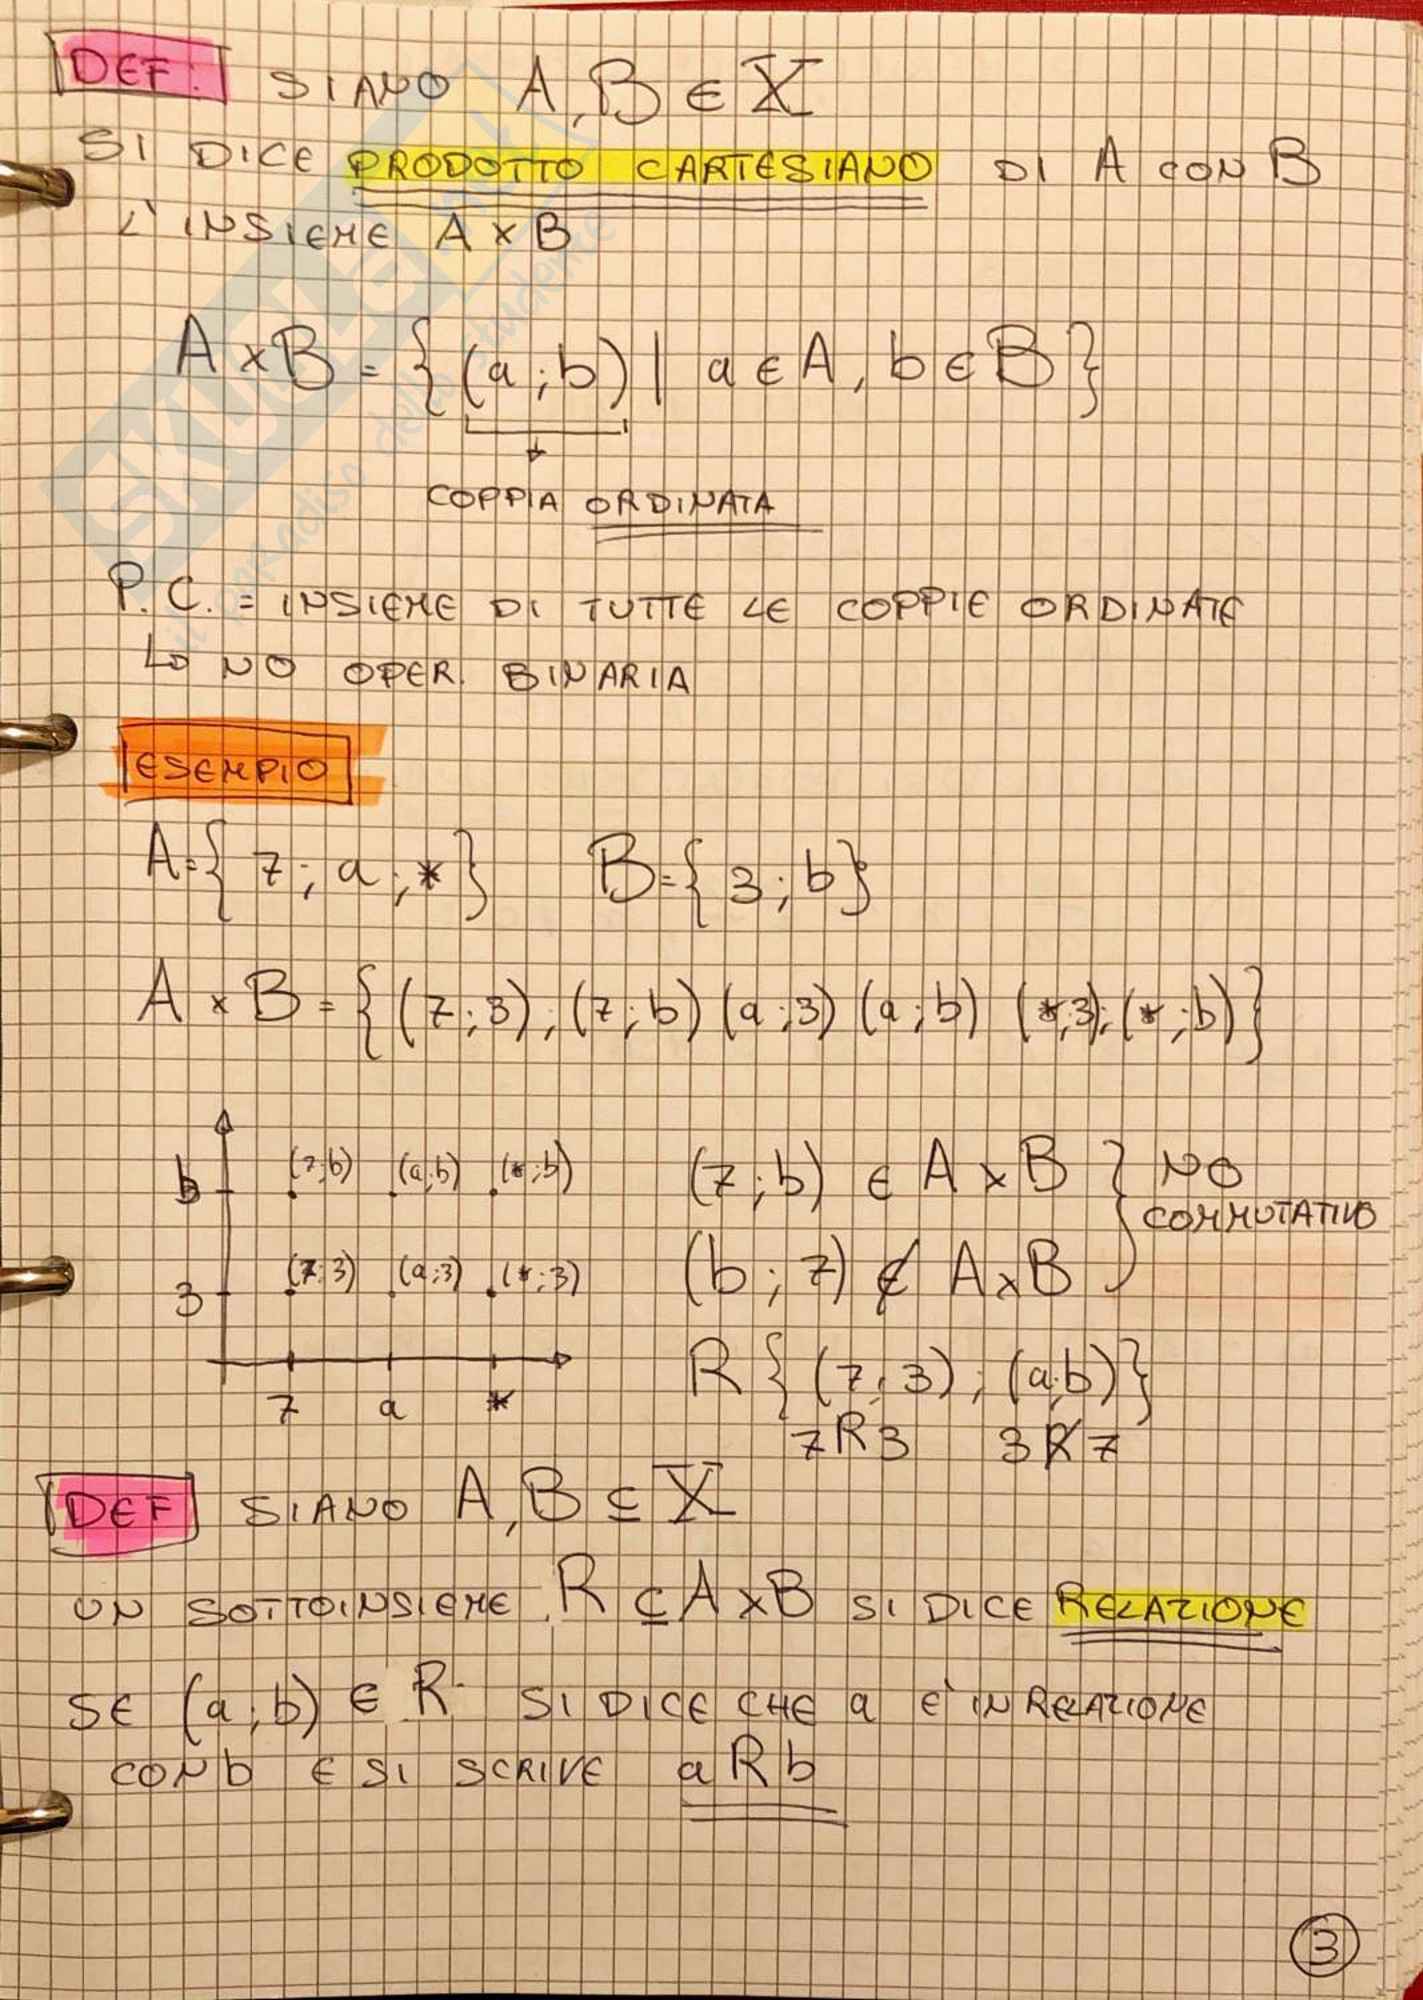 DEF: SIANO A, B ∈ X
SI DICE PRODOTTO CARTESIANO DI A CON B
L'INSIEME A × B
A × B = { (a ; b) | a ∈ A, b ∈ B }
COPPIA ORDINATA
P. C. = INSIEME DI TUTTE LE COPPIE ORDINATE
↳ NO OPER. BINARIA
ESEMPIO
A = { 7 ; a ; * } B = { 3 ; b }
A × B = { (7 ; 3) ; (7 ; b) (a ; 3) (a ; b) (* ; 3) ; (* ; b) }
b (7;b) (a;b) (*;b)
3 (7;3) (a;3) (*;3)
7 a *
(7 ; b) ∈ A × B } NO
COMMUTATIVO
(b ; 7) ∉ A × B
R { (7 ; 3) ; (a;b) }
7R3 3R̸7
DEF SIANO A, B ⊆ X
UN SOTTOINSIEME R ⊆ A × B SI DICE RELAZIONE
SE (a ; b) ∈ R SI DICE CHE a E' IN RELAZIONE
CON b E SI SCRIVE aRb
3
SKUOLA.net
il paradiso dello studente